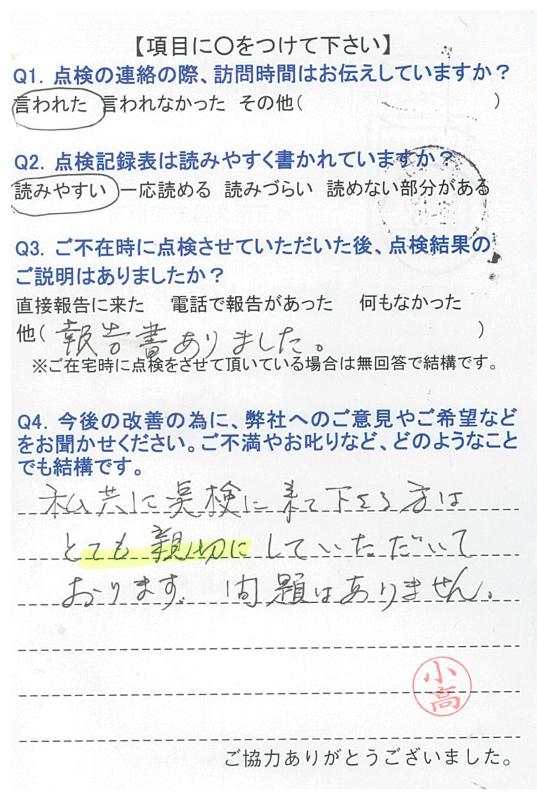 【項目に〇をつけて下さい】
Q1. 点検の連絡の際、訪問時間はお伝えしていますか？
言われた 言われなかった その他( )
Q2. 点検記録表は読みやすく書かれていますか？
読みやすい 一応読める 読みづらい 読めない部分がある
Q3. ご不在時に点検させていただいた後、点検結果の
ご説明はありましたか？
直接報告に来た 電話で報告があった 何もなかった
他( 報告書ありました。 )
※ご在宅時に点検をさせて頂いている場合は無回答で結構です。
Q4. 今後の改善の為に、弊社へのご意見やご希望など
をお聞かせください。ご不満やお叱りなど、どのようなこと
でも結構です。
私共に点検に来て下さる方は
とても親切にしていただいて
おります。問題はありません。
小高
ご協力ありがとうございました。